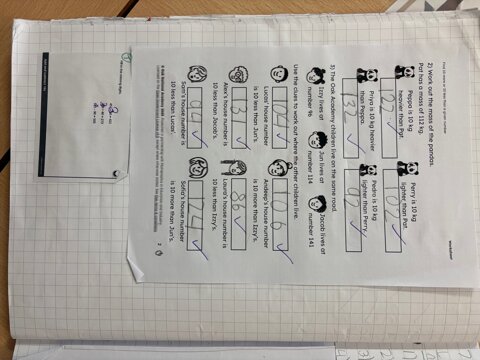 Find 10 more or 10 less than a given number
Worksheet
2) Work out the mass of the pandas.
Pat has a mass of 112 kg.
Peppa is 10 kg heavier than Pat.
122
Perry is 10 kg lighter than Pat.
102
Priya is 10 kg heavier than Peppa.
132
Pedro is 10 kg lighter than Perry.
92
3) The Oak Academy children live on the same road.
Izzy lives at number 96
Jun lives at number 114
Jacob lives at number 141
Use the clues to work out where the other children live.
Lucas' house number is 10 less than Jun's.
104
Andeep's house number is 10 more than Izzy's.
106
Alex's house number is 10 less than Jacob's.
131
Laura's house number is 10 less than Izzy's.
86
Sam's house number is 10 less than Lucas'.
94
Sofia's house number is 10 more than Jun's.
124
2